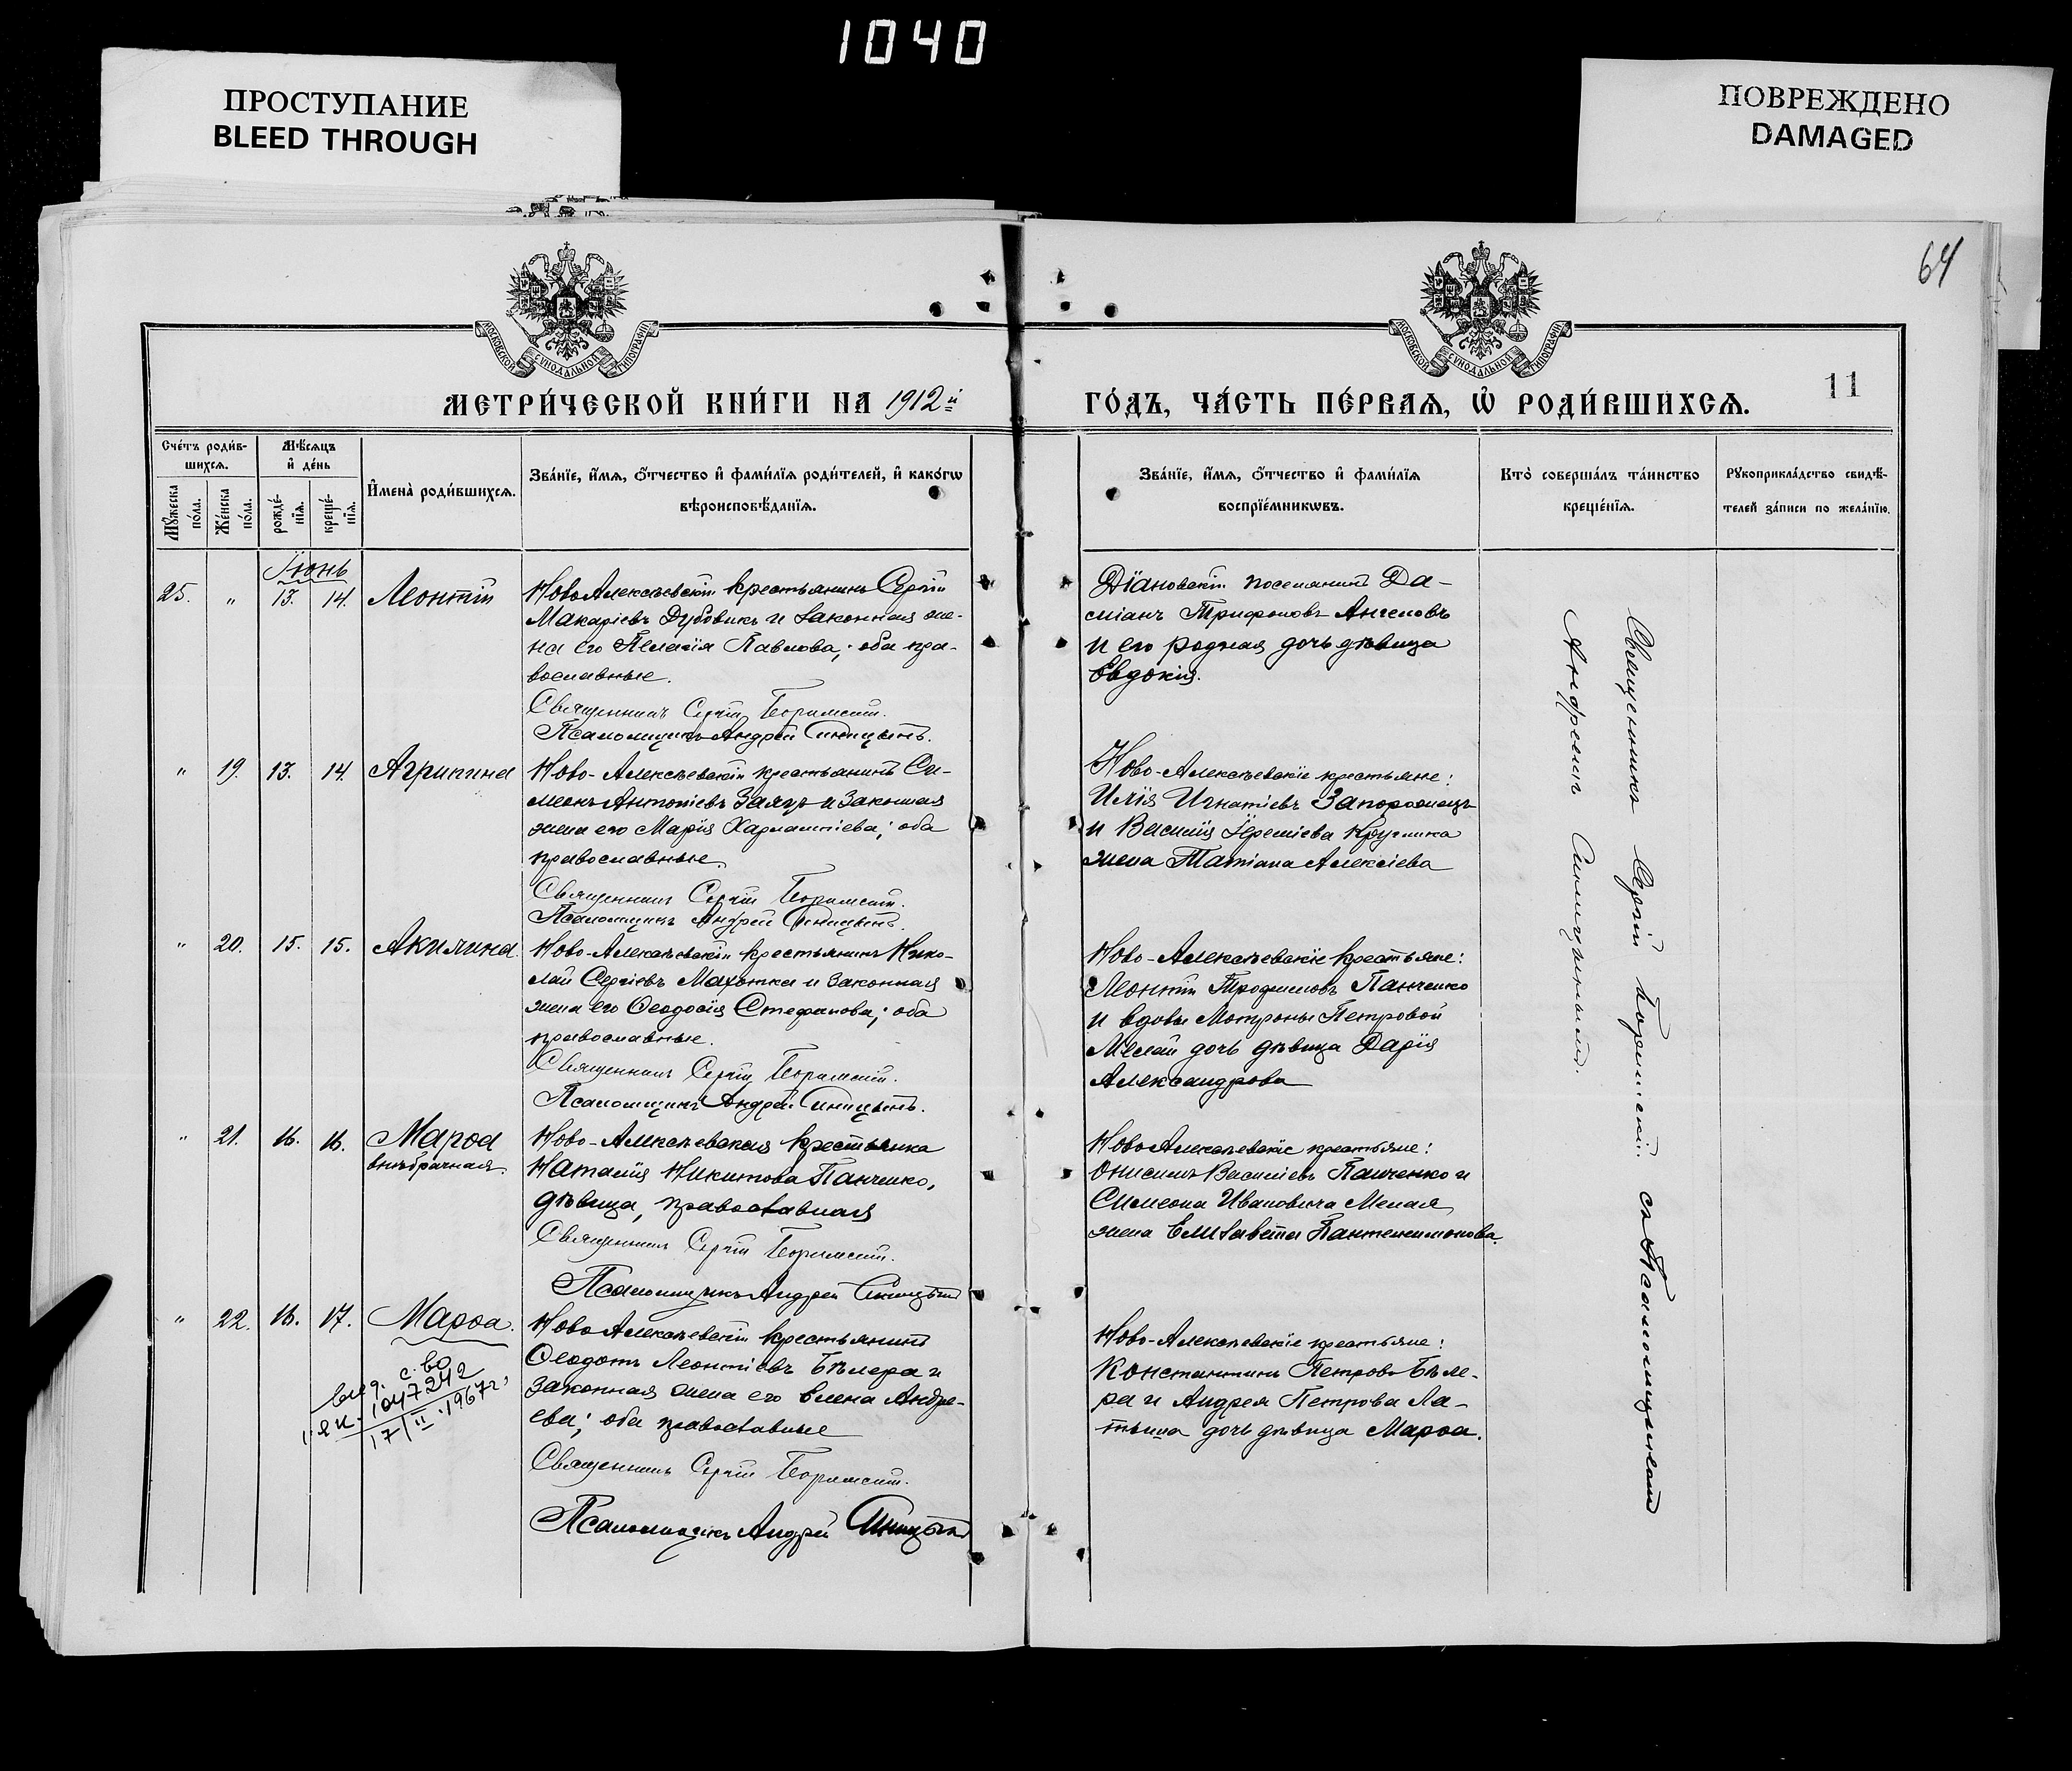 1040
ПРОСТУПАНИЕ
BLEED THROUGH
ПОВРЕЖДЕНО
DAMAGED
64
МОСКОВСКОЙ СУНОДАЛЬНОЙ ТИПОГРАФІИ
МОСКОВСКОЙ СУНОДАЛЬНОЙ ТИПОГРАФІИ
МЕТРИ́ЧЕСКОЙ КНИ́ГИ НА 1912й
ГО́ДЪ, ЧА́СТЬ ПЕ́РВАѦ, Ѡ҆ РОДИ́ВШИХСѦ.
11
Сче́тъ роди́в-
шихсѧ.
Мѣ́сѧцъ
и҆ де́нь
Мꙋ́жеска
по́ла.
Же́нска
по́ла.
рожде́-
нїѧ.
креще́-
нїѧ.
И҆мена̀ роди́вшихсѧ.
Зва́нїе, и҆́мѧ, ѻ҆́тчество и҆ фами́лїѧ роди́телей, и҆ како́гѡ
вѣроисповѣ́данїѧ.
Зва́нїе, и҆́мѧ, ѻ҆́тчество и҆ фами́лїѧ
воспрїе́мникѡвъ.
Кто̀ соверша́лъ та́инство
креще́нїѧ.
Рꙋкоприкла́дство свидѣ́-
телей за́писи по жела́нїю.
Іюнь
25. " 13. 14. Леонтій
НовоАлексѣевскій крестьянинъ Сергій
Макаріевъ Дубовикъ и законная же-
на его Пелагія Павлова; оба пра-
вославные.
Священникъ Сергій
Псаломщикъ Андрей Синицынъ.
Діановскій поселянинъ Да-
міанъ Трифоновъ Ангеловъ
и его родная дочь дѣвица
Евдокія.
" 19. 13. 14. Агрипина
Ново-Алексѣевскій крестьянинъ Си-
меонъ Антоніевъ Заяцъ и законная
жена его Марія Харлампіева; оба
православные.
Священникъ Сергій
Псаломщикъ Андрей Синицынъ.
Ново-Алексѣевскіе крестьяне:
Илія Игнатіевъ Запорожецъ
и Василія Іереміева Круглика
жена Татіана Алексіева
" 20. 15. 15. Акилина.
Ново-Алексѣевскій крестьянинъ Нико-
лай Сергіевъ Махотка и законная
жена его Ѳеодосія Стефанова; оба
православные.
Священникъ Сергій
Псаломщикъ Андрей Синицынъ.
Ново-Алексѣевскіе крестьяне:
Леонтій Трофимовъ Панченко
и вдовы Мотроны Петровой
дочь дѣвица Дарія
Александрова
" 21. 16. 16. Марѳа
внѣбрачная.
Ново-Алексѣевская крестьянка
Наталія Никитова Панченко,
дѣвица, православная
Священникъ Сергій
Псаломщикъ Андрей Синицынъ
НовоАлексѣевскіе крестьяне:
Онисимъ Василіевъ Панченко и
Симеона Ивановича Мелая
жена Елисавета Пантелеимонова.
" 22. 16. 17. Марѳа.
НовоАлексѣевскій крестьянинъ
Ѳеодотъ Леонтіевъ Бѣлера и
законная жена его Елена Андре-
ева; оба православные
Священникъ Сергій
Псаломщикъ Андрей Синицынъ
Ново-Алексѣевскіе крестьяне:
Константинъ Петровъ Бѣле-
ра и Андрея Петрова Ла-
тыша дочь дѣвица Марѳа.
выд. с-во
1047242
17/II.1967г.
Священникъ Сергій съ Псаломщикомъ
Андреемъ Синицынымъ.